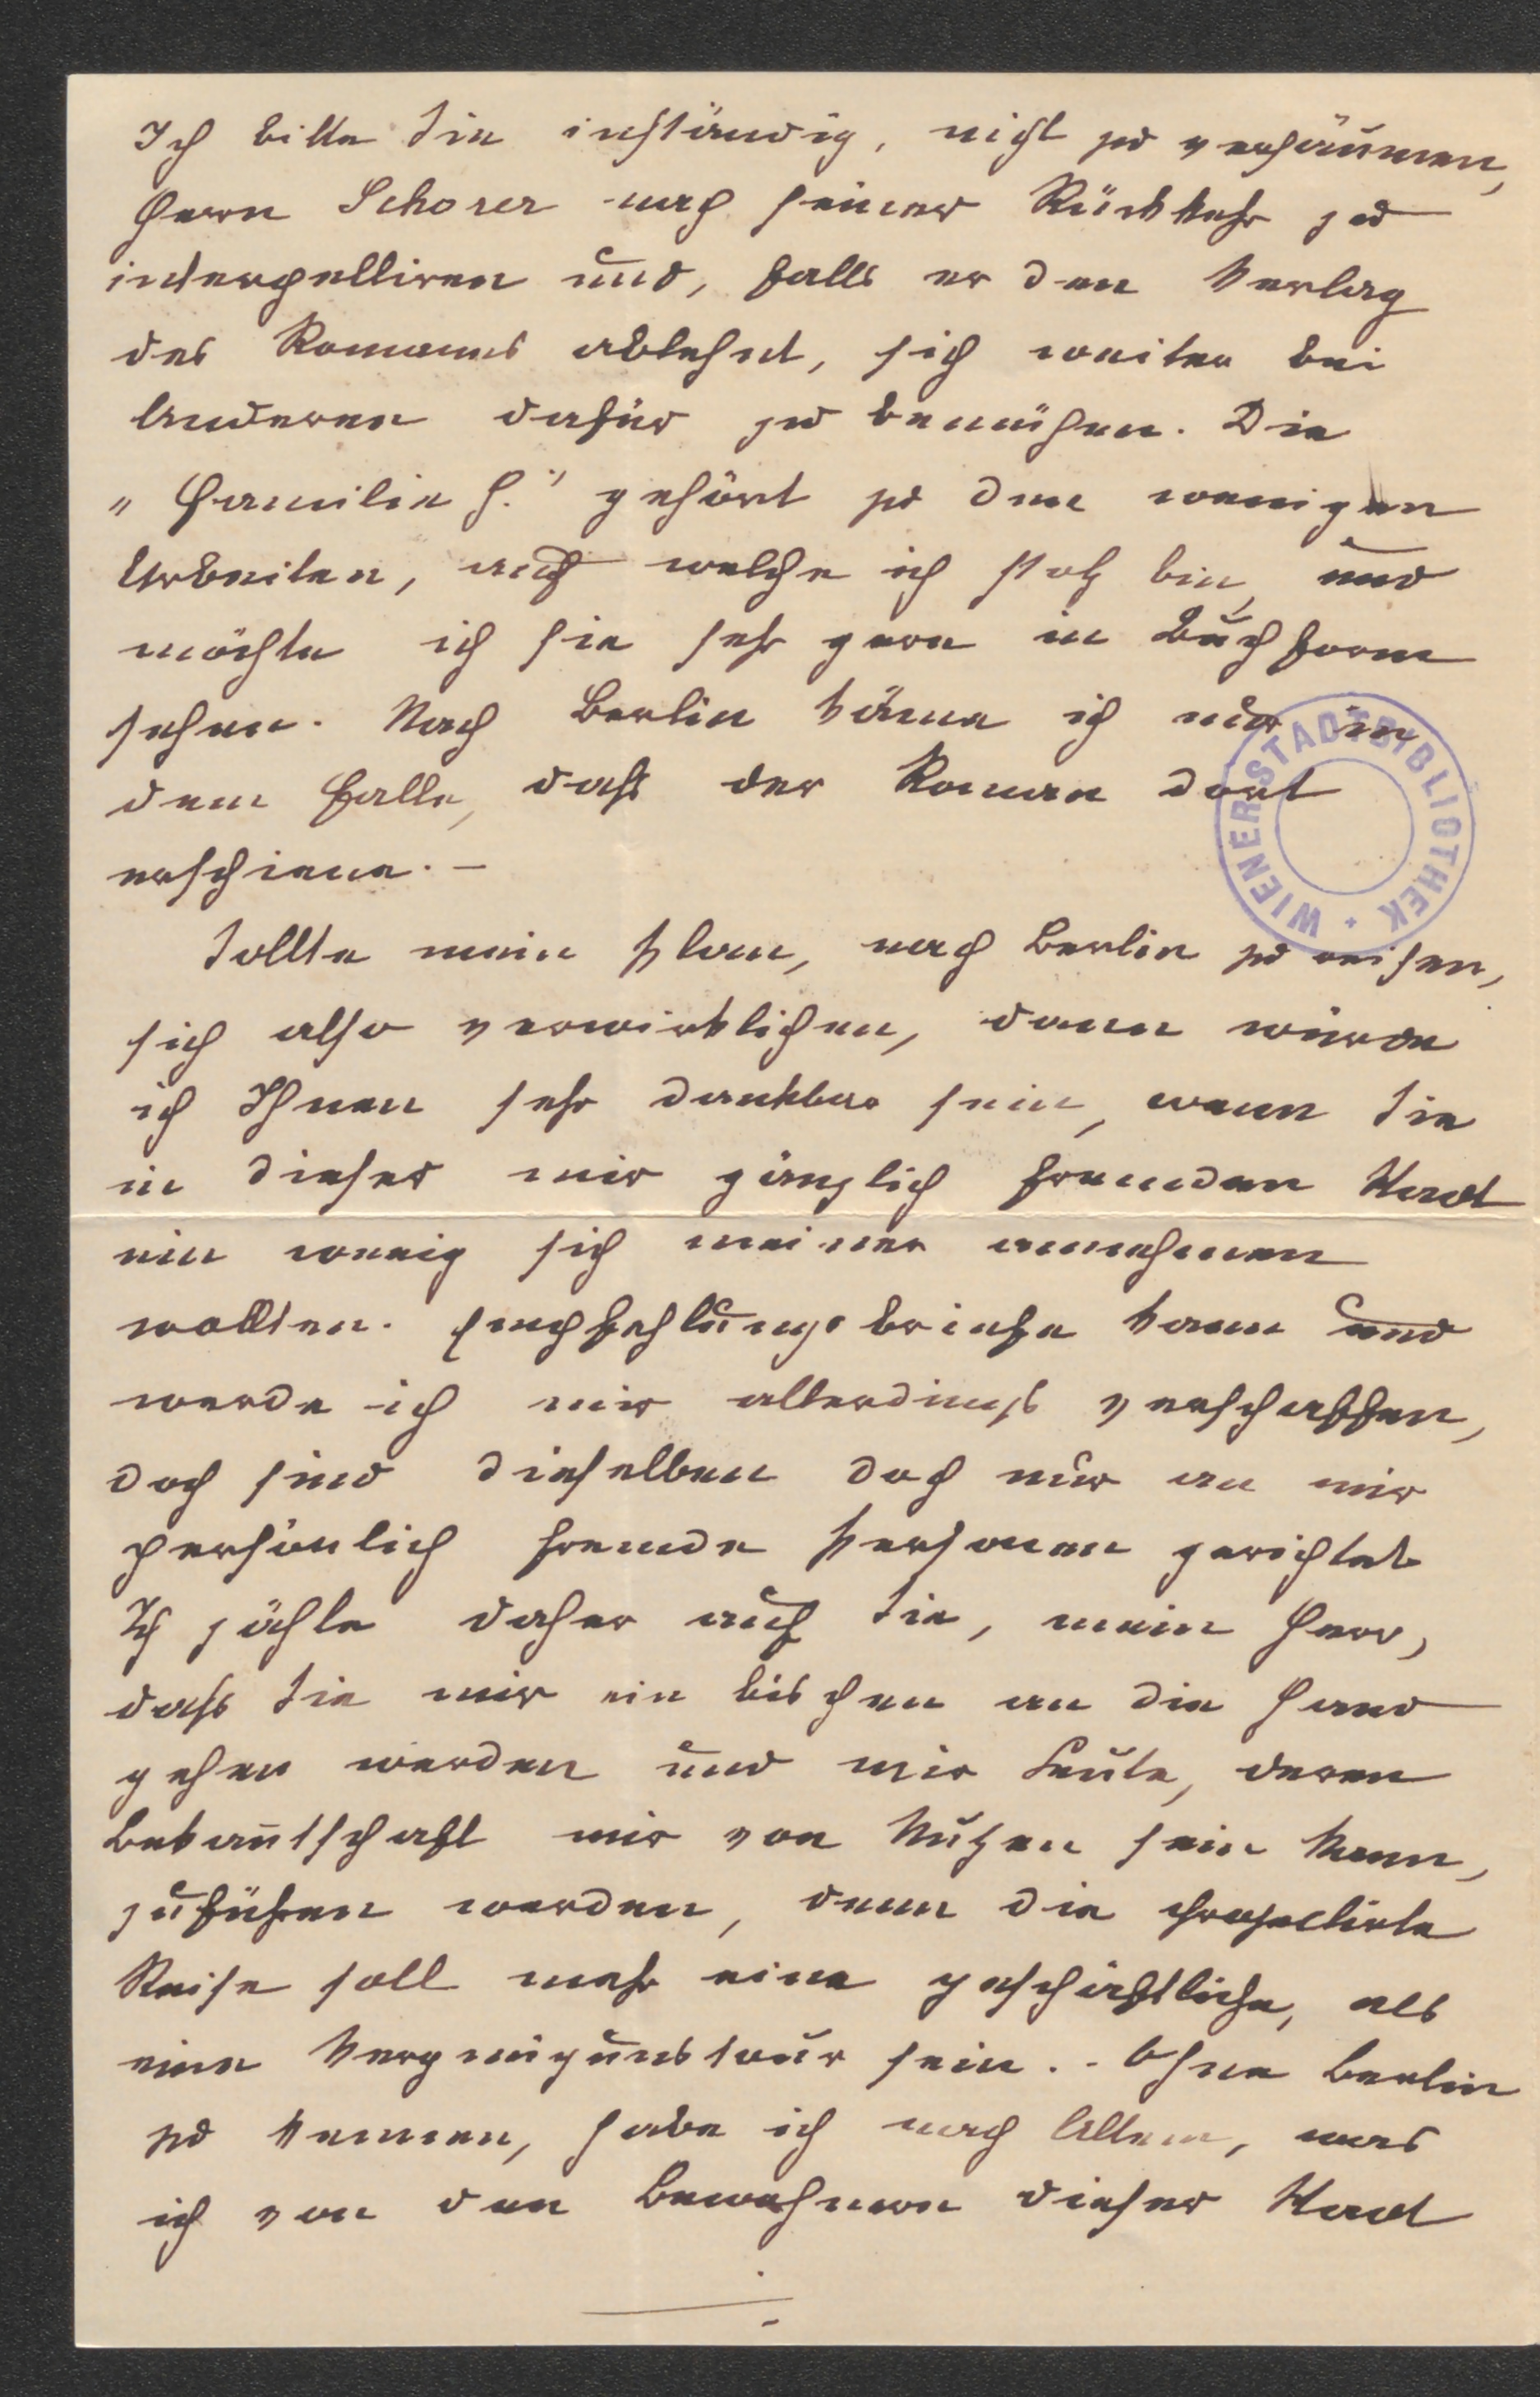 Ich bitte Sie inständig, nicht zu versäumen,
Herrn Schorer nach seiner Rückkehr zu
interpelliren und, falls er den Verlag
des Romanes ablehnt, sich weiter bei
Anderen dafür zu bemühen. Die
„Familie H." gehört zu den wenigen
Arbeiten, auf welche ich stolz bin, und
möchte ich sie sehr gern in Buchform
sehen. Nach Berlin käme ich nur in
dem Falle, daß der Roman dort
erschiene. –
Sollte mein Plan, nach Berlin zu reisen,
sich also verwirklichen, dann würde
ich Ihnen sehr dankbar sein, wenn Sie
in dieser mir gänzlich fremden Stadt
ein wenig sich meiner annehmen
wollten. Empfehlungsbriefe kann und
werde ich mir allerdings verschaffen,
doch sind dieselben doch nur an mir
persönlich fremde Personen gerichtet.
Ich zähle daher auf Sie, mein Herr,
dass Sie mir ein bischen an die Hand
gehen werden und mir Leute, deren
Bekanntschaft mir von Nutzen sein kann,
zuführen werden, denn die projectirte
Reise soll mehr eine geschäftliche, als
eine Vergnügunstour sein. - Ohne Berlin
zu kennen, habe ich nach Allem, was
ich von den Bewohnern dieser Stadt
WIENER STADTBIBLIOTHEK